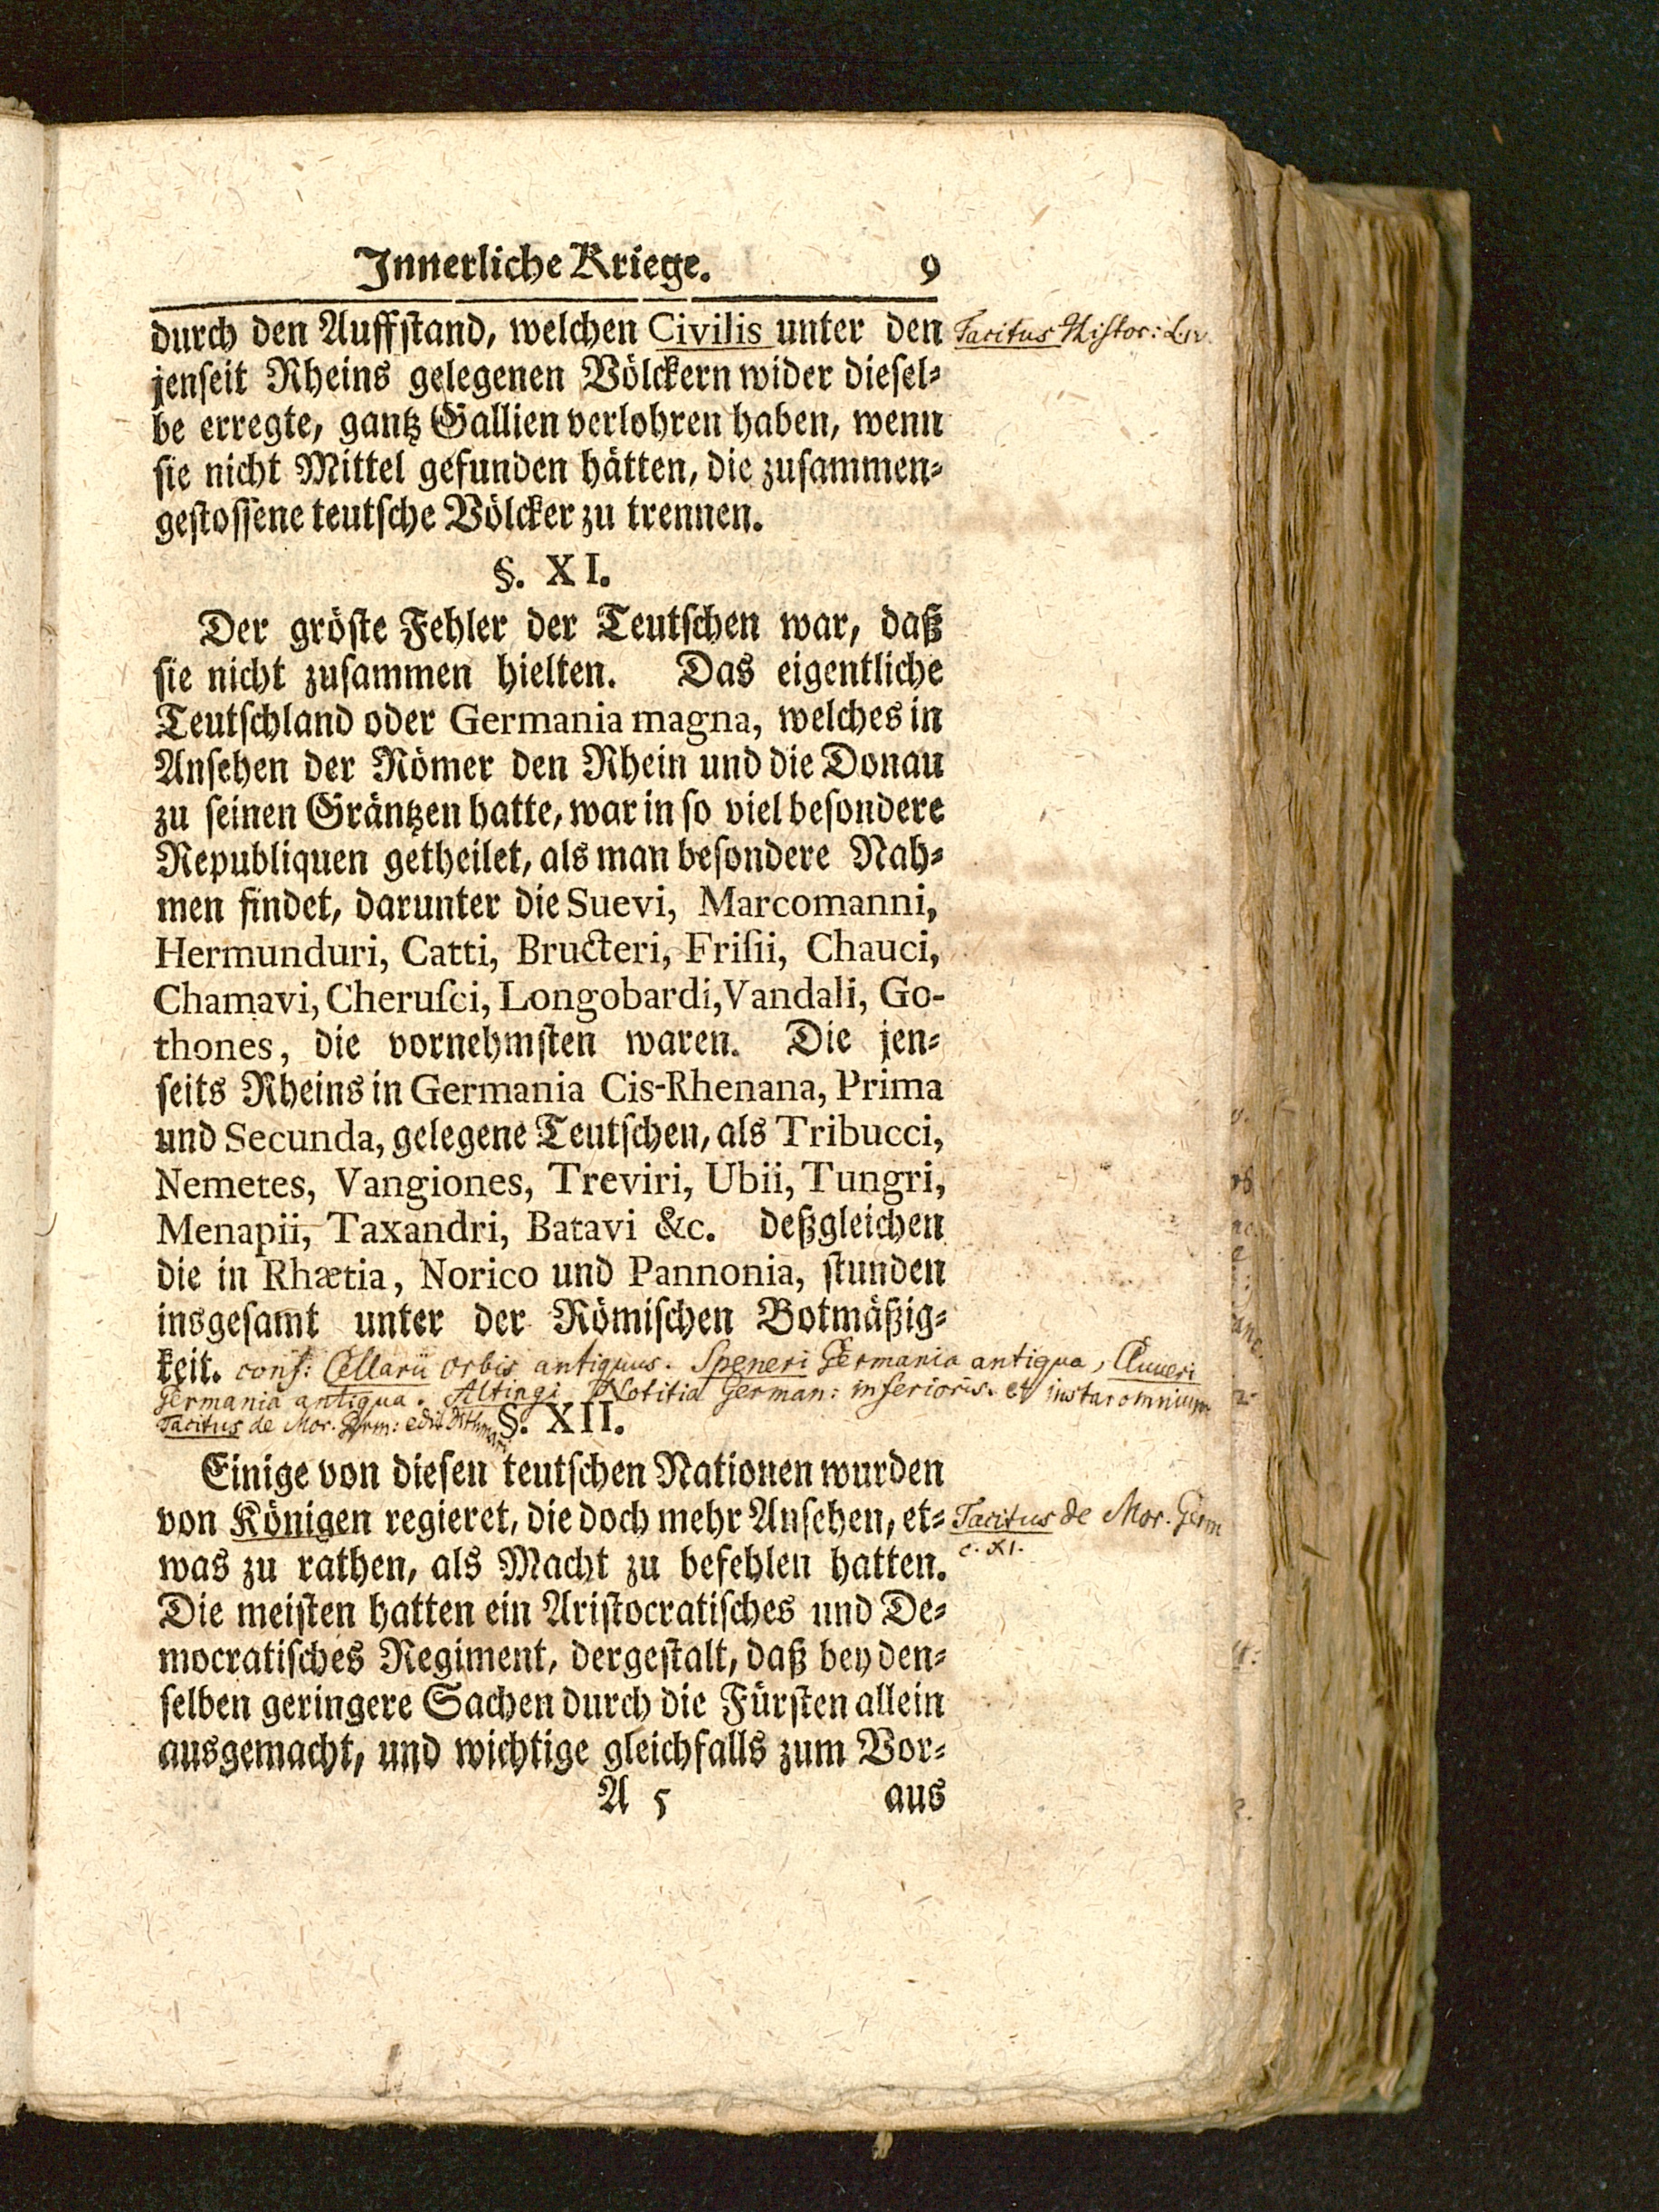 Innerliche Kriege. 9
durch den Auffstand, welchen Civilis unter den
Tacitus Histor: L. IV.
jenseit Rheins gelegenen Völckern wider diesel-
be erregte, gantz Gallien verlohren haben, wenn
sie nicht Mittel gefunden hätten, die zusammen-
gestossene teutsche Völcker zu trennen.
§. XI.
Der gröste Fehler der Teutschen war, daß
sie nicht zusammen hielten. Das eigentliche
Teutschland oder Germania magna, welches in
Ansehen der Römer den Rhein und die Donau
zu seinen Gräntzen hatte, war in so viel besondere
Republiquen getheilet, als man besondere Nah-
men findet, darunter die Suevi, Marcomanni,
Hermunduri, Catti, Bructeri, Frisii, Chauci,
Chamavi, Cherusci, Longobardi, Vandali, Go-
thones, die vornehmsten waren. Die jen-
seits Rheins in Germania Cis-Rhenana, Prima
und Secunda, gelegene Teutschen, als Tribucci,
Nemetes, Vangiones, Treviri, Ubii, Tungri,
Menapii, Taxandri, Batavi &c. deßgleichen
die in Rhætia, Norico und Pannonia, stunden
insgesamt unter der Römischen Botmäßig-
keit. conf: Cellarii orbis antiquus. Speneri Germania antiqua, Cluveri
Germania antiqua. Altingi Notitia German: inferioris. et instar omnium
Tacitus de Mor. Germ: edit. Dithmari
§. XII.
Einige von diesen teutschen Nationen wurden
von Königen regieret, die doch mehr Ansehen, et-
Tacitus de Mor. Germ
c. XI.
was zu rathen, als Macht zu befehlen hatten.
Die meisten hatten ein Aristocratisches und De-
mocratisches Regiment, dergestalt, daß bey den-
selben geringere Sachen durch die Fürsten allein
ausgemacht, und wichtige gleichfalls zum Vor-
A 5 aus